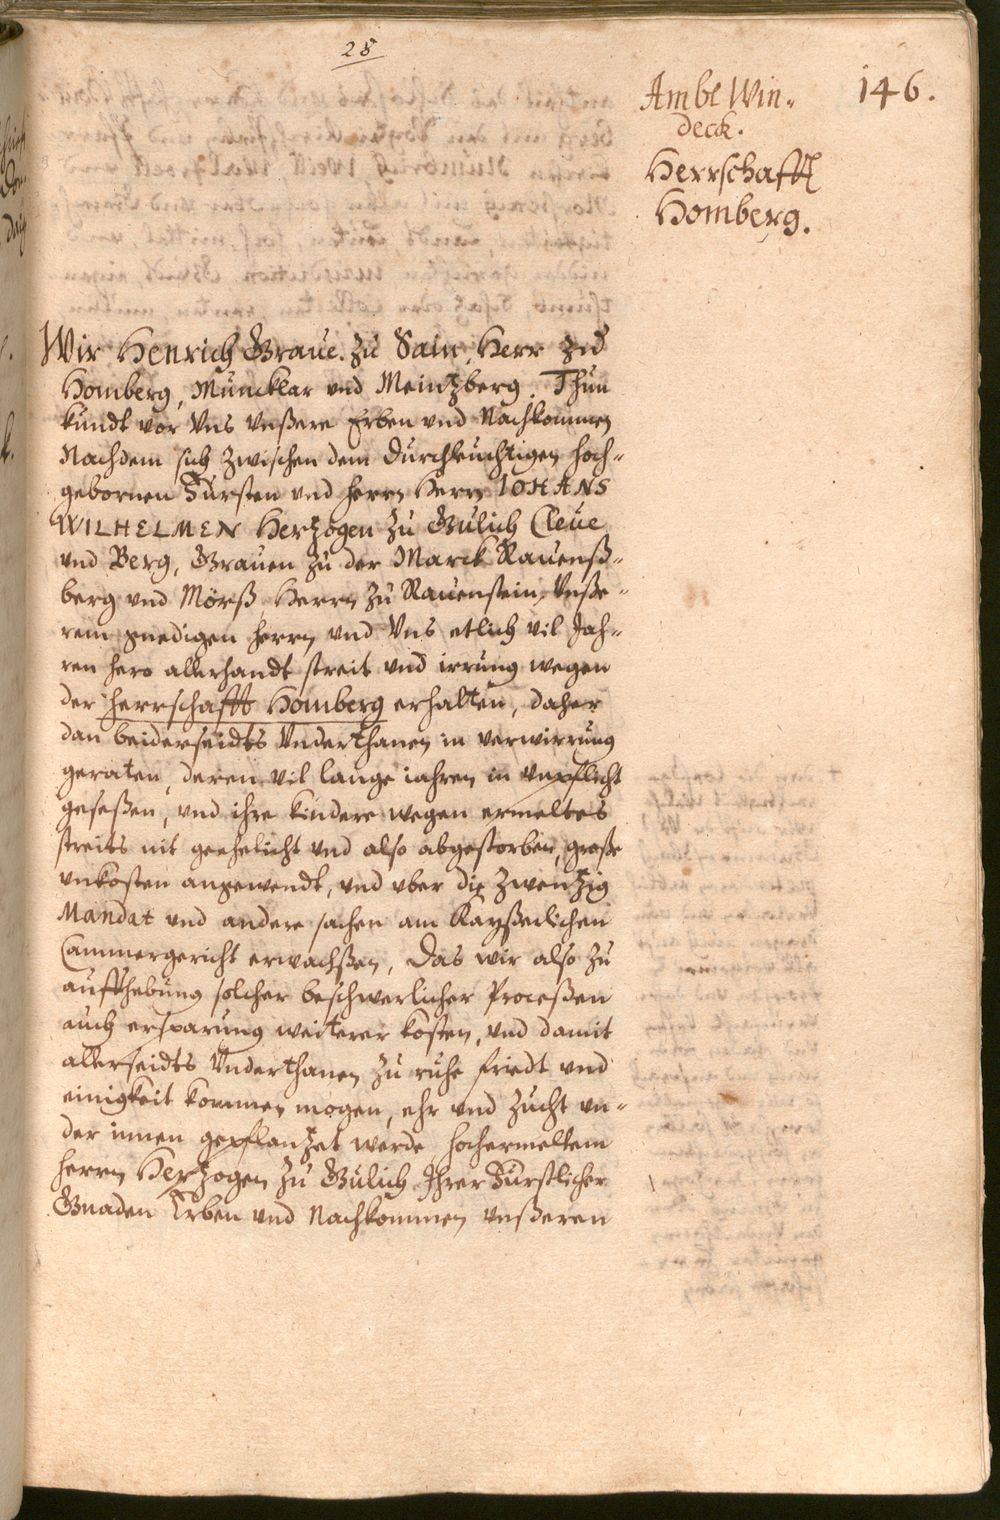 28
146.
Ambt Win-
deck.
Herrschafft
Homberg.
Wir Henrich Graue zu Sain, Herr zu
Homberg, Muncklar vnd Meintzberg. Thun
kundt vor Vns Vnßere Erben vnd Nachkommen
Nachdem sich zwischen dem Durchleuchtigen hoch-
gebornen Fursten vnd herrn Herrn IOHANS
WILHELMEN Hertzogen zu Gulich Cleue
vnd Berg, Grauen zu der Marck Rauenß-
berg vnd Mörß, Herrn zu Rauenstein, Vnße-
rem gnedigen herrn, vnd Vns etlich vil Jah-
ren hero allerhandt streit vnd irrung wegen
der herrschafft Homberg erhalten, daher
dan beiderseidts Vnderthanen in verwirrung
geraten, deren vil lange iahren in vnpflicht
geseßen, vnd ihre kindere wegen ermeltes
streits nit geehelicht vnd also abgestorben, große
vnkosten angewendt, vnd vber die zwentzig
Mandat vnd andere sachen am Kayßerlichen
Cammergericht erwachßen, Das wir also zu
auffhebung solcher beschwerlicher Proceßen
auch ersparung weiterer kosten, vnd damit
allerseidts Vnderthanen zu ruhe friedt vnd
einigkeit kommen mogen, ehr vnd zucht vn-
der innen gepflantzet werde, hochermeltem
herrn Hertzogen zu Gulich Ihrer Furstlicher
Gnaden Erben vnd Nachkommen vnßeren